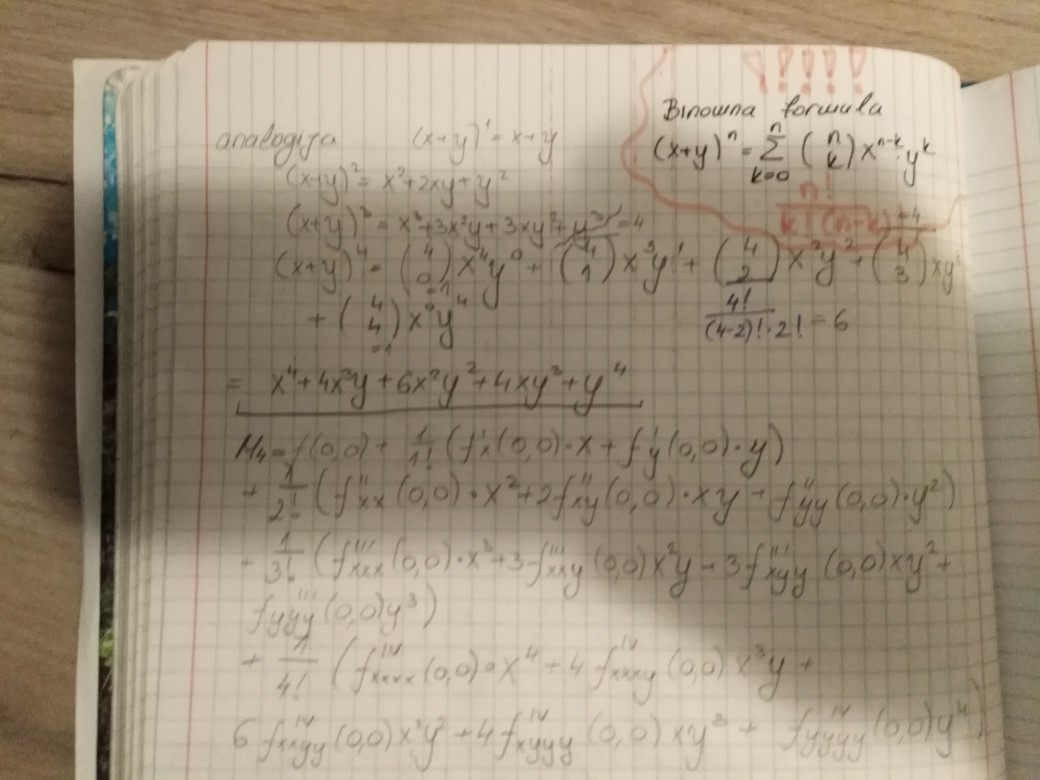 ! ! ! ! !
Binowna formula
analogija (x+y)¹ = x+y
(x+y)ⁿ = Σₖ₌₀ⁿ (n k) xⁿ⁻ᵏ yᵏ
n! / k!(n-k)!
(x+y)² = x²+2xy+y²
(x+y)³ = x³+3x²y+3xy²+y³
=4 =4
(x+y)⁴ = (4 0) x⁴y⁰ + (4 1) x³y¹ + (4 2) x²y² + (4 3) xy³
=1
+ (4 4) x⁰y⁴ 4! / (4-2)!·2! = 6
=1
= x⁴+4x³y+6x²y²+4xy³+y⁴
M₄ = f(0,0) + 1/1! (f'x(0,0)·x + f'y(0,0)·y)
+ 1/2! (f''xx(0,0)·x²+2f''xy(0,0)·xy + f''yy(0,0)·y²)
+ 1/3! (f'''xxx(0,0)·x³+3f'''xxy(0,0)x²y + 3f'''xyy(0,0)xy² +
f'''yyy(0,0)y³)
+ 1/4! (fᴵⱽxxxx(0,0)·x⁴ + 4fᴵⱽxxxy(0,0)x³y +
6fᴵⱽxxyy(0,0)x²y² + 4fᴵⱽxyyy(0,0)xy³ + fᴵⱽyyyy(0,0)y⁴)